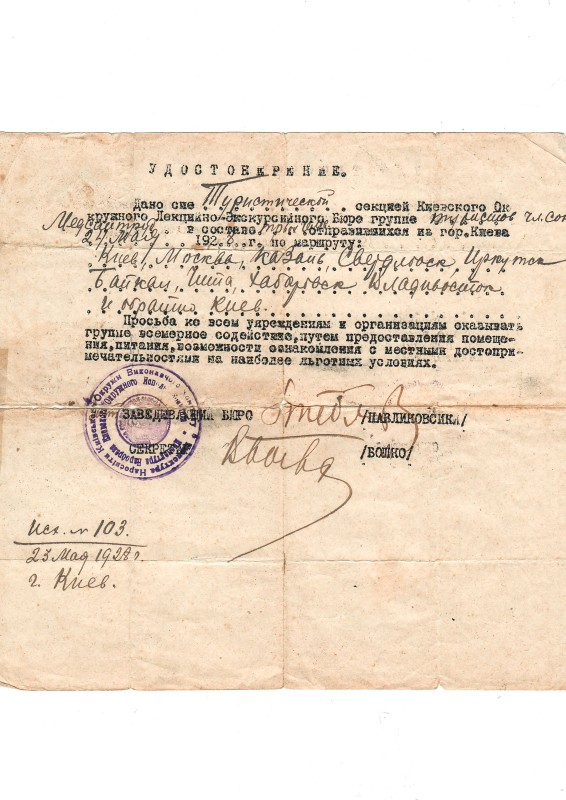 УДОСТОВЕРЕНИЕ.
Дано сие Туристической секцией Киевского Ок-
кружного Лекцийно-Экскурсийного Бюро группе туристов чл. сою
Медсантруд в составе отправившихся из гор. Киева
27 Мая 1928 г. по маршруту:
Киев, Москва, Казань Свердловск, Иркутск
Байкал, Чита, Хабаровск Владивосток
и обратно Киев.
Просьба ко всем учреждениям и организациям оказывать
группе всемерное содействие, путем предоставления помеще-
ния, питания, возможности ознакомления с местными достопри-
мечательностями на наиболее льготных условиях.
ЗАВЕДЫВАЮЩИЙ БЮРО /ПАВЛИКОВСКИЙ/
СЕКРЕТАРЬ /БОШКО/
Исх. № 103.
23 Мая 1928 г.
г. Киев.